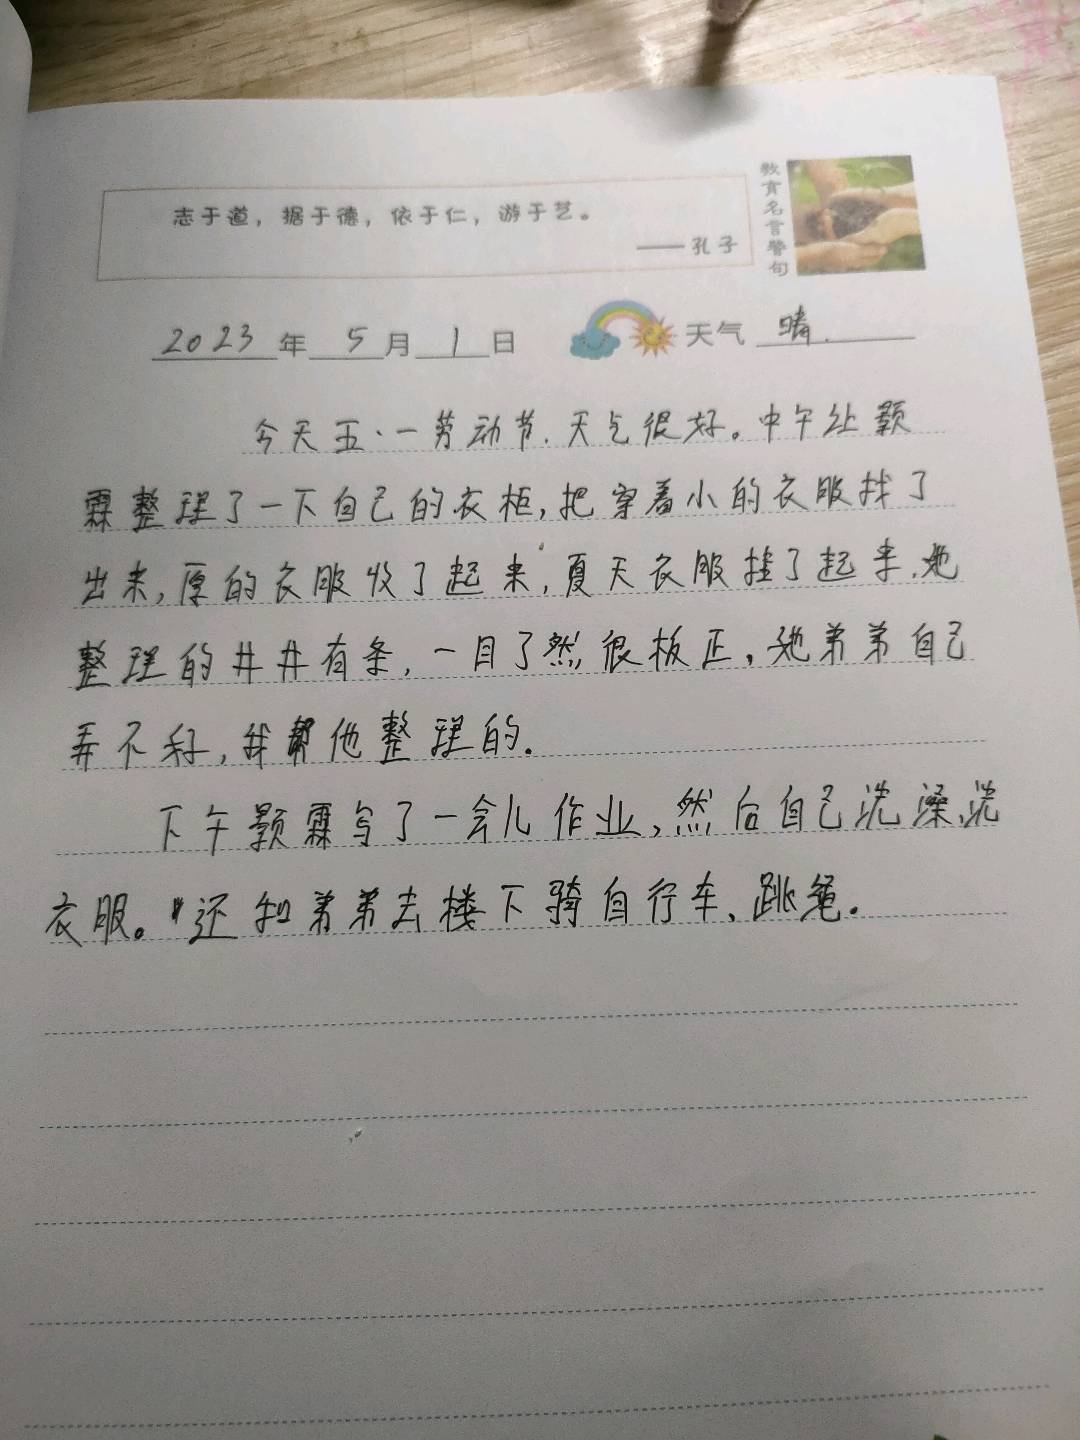 志于道，据于德，依于仁，游于艺。
——孔子
教育名言警句
2023年 5月 1日 天气 晴.
今天五·一劳动节.天气很好。中午让颢
霖整理了一下自己的衣柜,把穿着小的衣服找了
出来,厚的衣服收了起来,夏天衣服挂了起来.她
整理的井井有条,一目了然很板正,她弟弟自己
弄不好,我帮他整理的.
下午颢霖写了一会儿作业,然后自己洗澡,洗
衣服。还和弟弟去楼下骑自行车、跳绳.